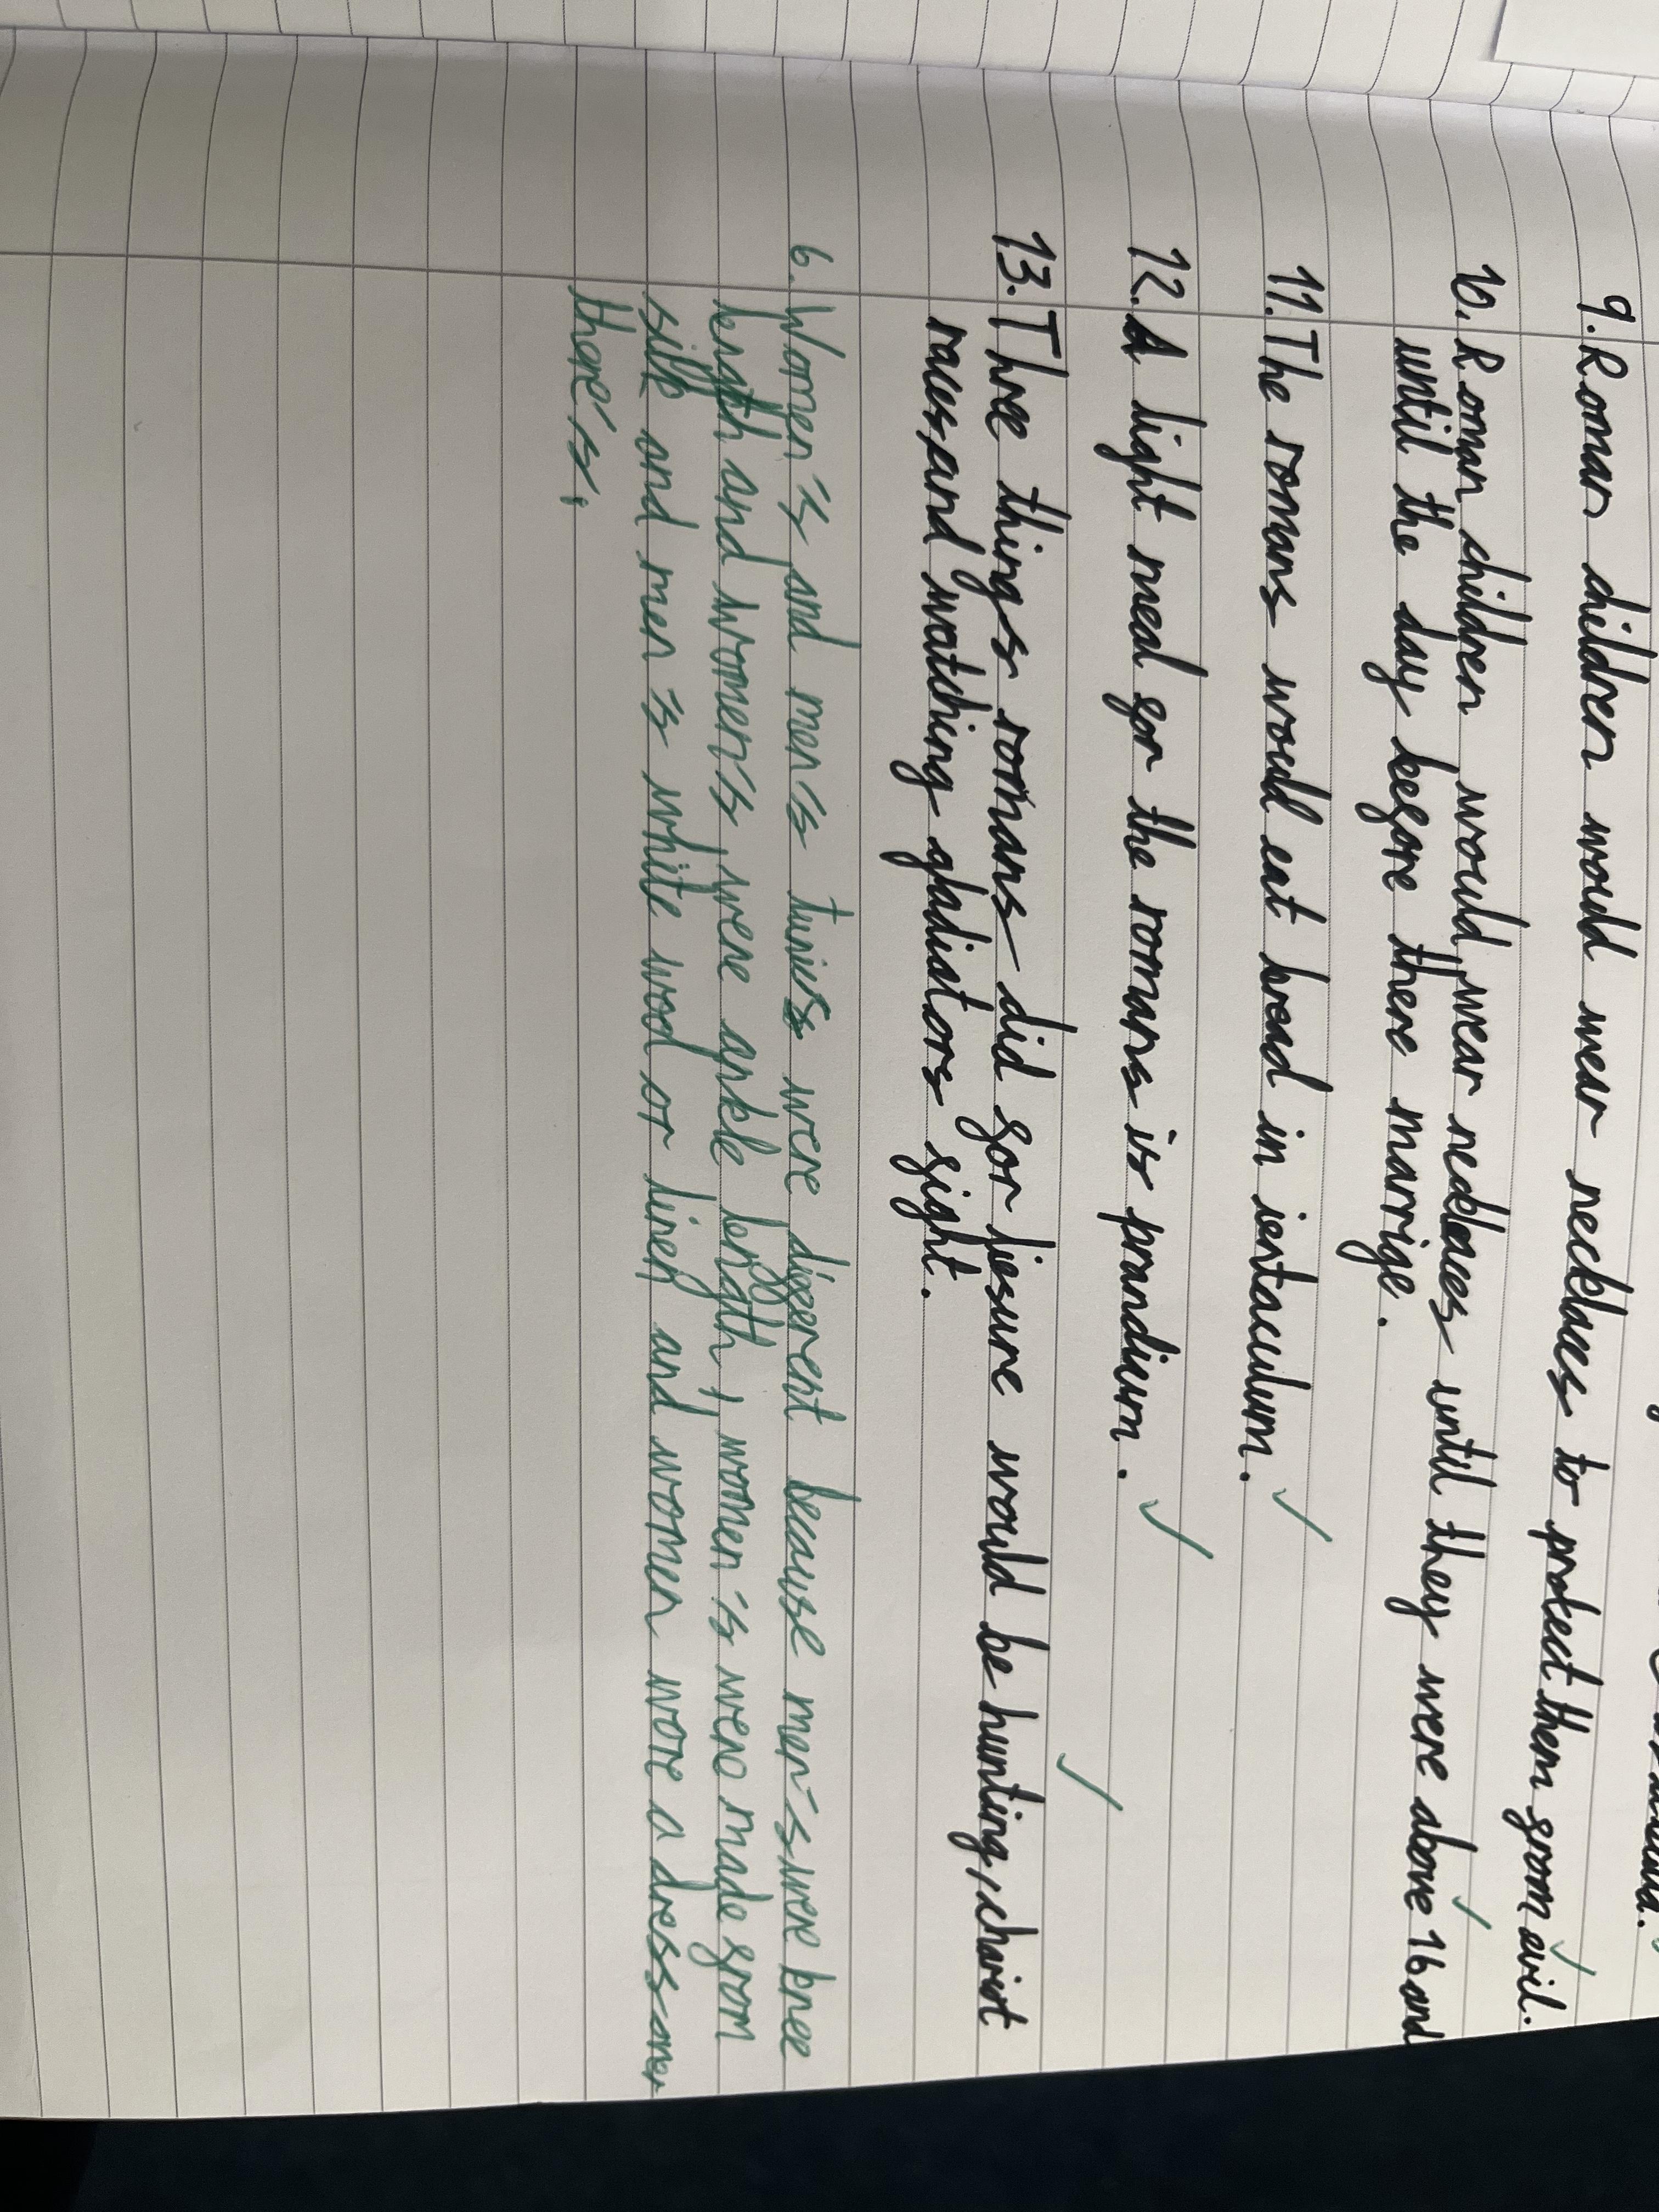 9. Roman children would wear necklaces to protect them from evil.
10. Roman children would wear necklaces until they were above 16 and
until the day before there marrige.
11. The romans would eat bread in ientaculum.
12. A light meal for the romans is prandium.
13. Three things romans did for liesure would be hunting, chariot
races, and watching gladiators fight.
6. Women's and men's tunics were different because men's were knee
length and women's were ankle length, women's were made from
silk and men's white wool or linen and women wore a dress over
there's.